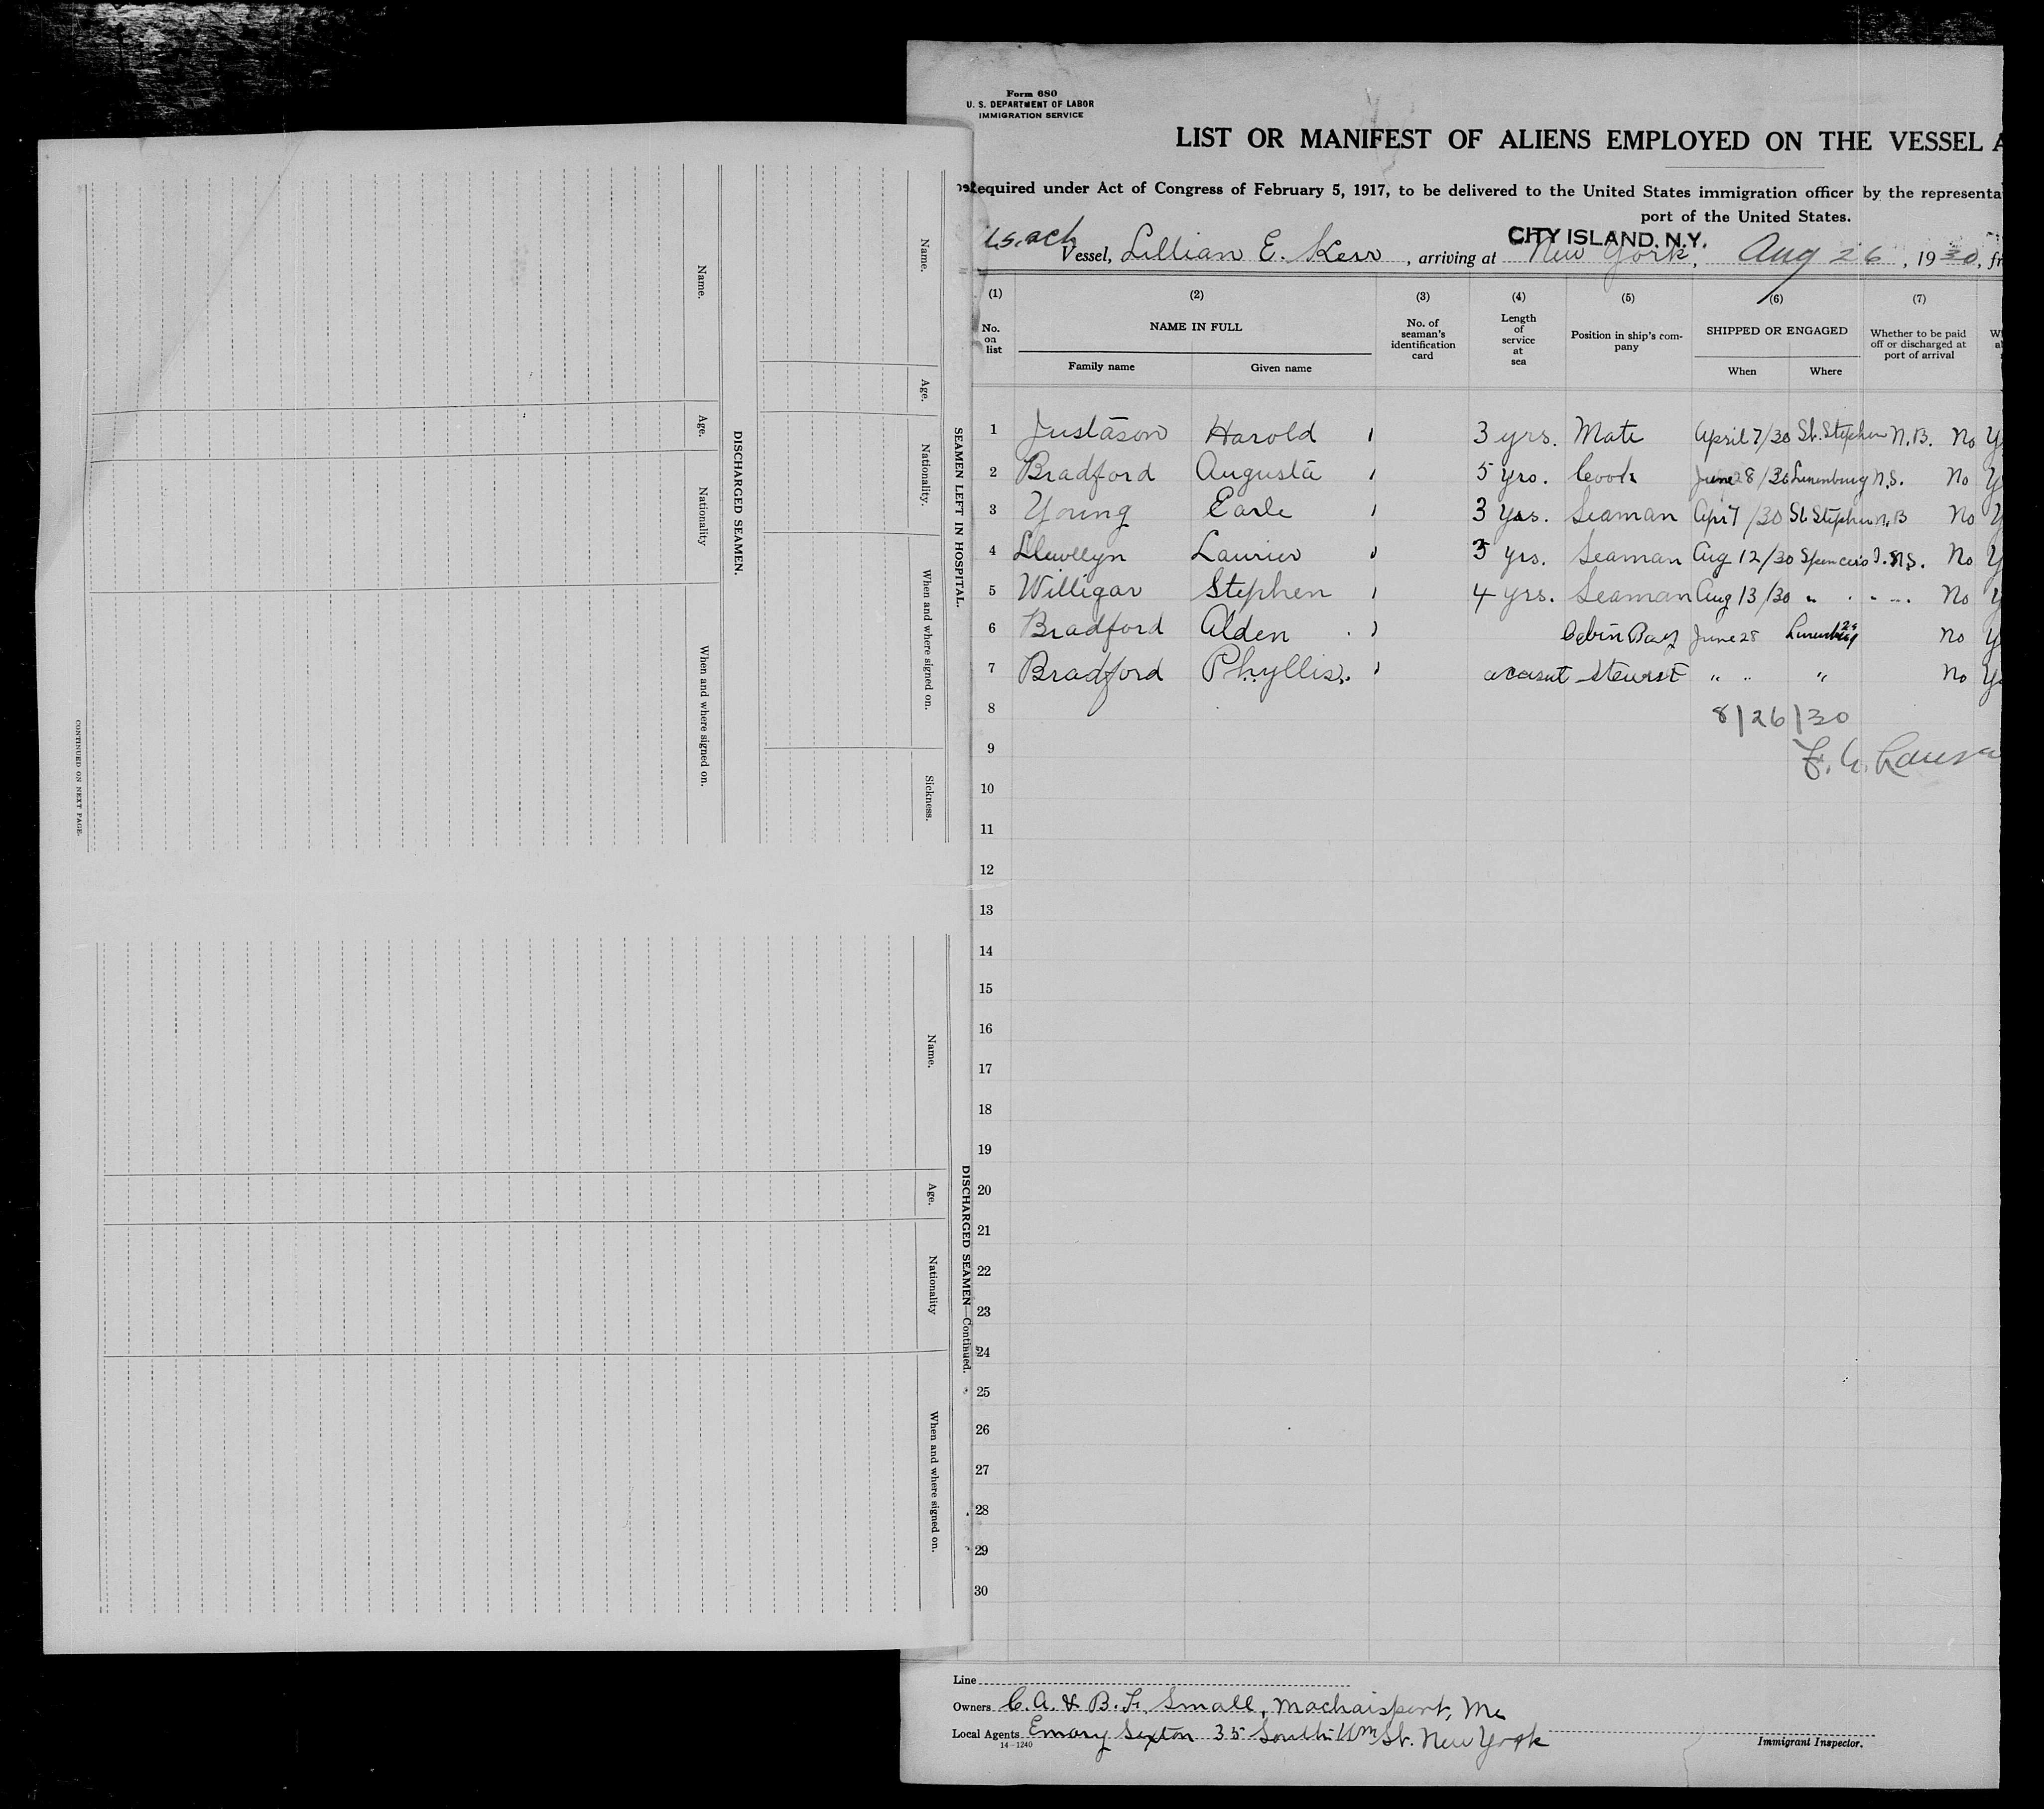 Name.
Age.
Nationality.
When and where signed on.
Sickness.
SEAMEN LEFT IN HOSPITAL.
DISCHARGED SEAMEN.
Name.
Age.
Nationality
When and where signed on.
CONTINUED ON NEXT PAGE.
DISCHARGED SEAMEN—Continued.
Name.
Age.
Nationality
When and where signed on.
Form 680
U. S. DEPARTMENT OF LABOR
IMMIGRATION SERVICE
LIST OR MANIFEST OF ALIENS EMPLOYED ON THE VESSEL A
Required under Act of Congress of February 5, 1917, to be delivered to the United States immigration officer by the representa
port of the United States.
CITY ISLAND. N.Y.
Vessel, Lillian E. Kerr , arriving at New York, Aug 26 , 1930, fr
(1) (2) (3) (4) (5) (6) (7)
No. on list
NAME IN FULL
Family name Given name
No. of seaman's identification card
Length of service at sea
Position in ship's company
SHIPPED OR ENGAGED
When Where
Whether to be paid off or discharged at port of arrival
1 Justason Harold 3 yrs. Mate April 7/30 St. Stephen N.B. No
2 Bradford Augusta 5 yrs. Cook June 28/30 Lunenburg N.S. No
3 Young Earle 3 yrs. Seaman Apr 7/30 St Stephen N.B No
4 Llewellyn Laurier 3 yrs. Seaman Aug 12/30 Spencers I. N.S. No
5 Willigar Stephen 4 yrs. Seaman Aug 13/30 " " No
6 Bradford Alden Cabin Boy June 28 Lunenburg No
7 Bradford Phyllis. " " " No
8 8/26/30
9
10
11
12
13
14
15
16
17
18
19
20
21
22
23
24
25
26
27
28
29
30
Line
Owners C. A. & B. F. Small, Machaisport, Me
Local Agents Emary Sexton 35 South Wm St. New York
14—1240
Immigrant Inspector.